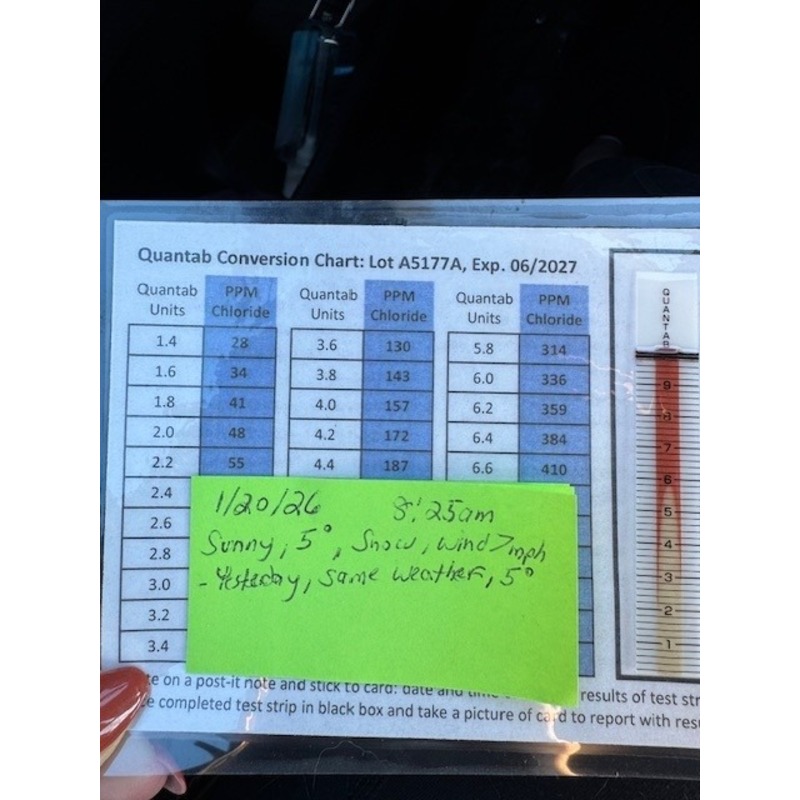 Quantab Conversion Chart: Lot A5177A, Exp. 06/2027
Quantab Units PPM Chloride Quantab Units PPM Chloride Quantab Units PPM Chloride
1.4 28 3.6 130 5.8 314
1.6 34 3.8 143 6.0 336
1.8 41 4.0 157 6.2 359
2.0 48 4.2 172 6.4 384
2.2 55 4.4 187 6.6 410
2.4
2.6
2.8
3.0
3.2
3.4
1/20/26 8:25am
Sunny, 5°, Snow, wind 7mph
- Yesterday, same weather, 5°
on a post-it note and stick to card: date and time results of test
completed test strip in black box and take a picture of card to report with
QUANTAB
9
8
7
6
5
4
3
2
1